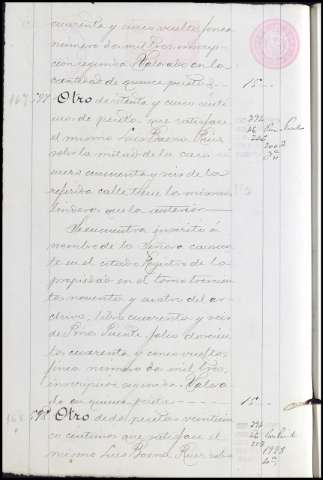 cuarenta y cinco vuelto, finca
número dos mil tres, inscrip-
ción segunda. Valorado en la
cantidad de quince pesetas
15
167
Otro de setenta y cinco cénti-
mos de peseta que satisface
el mismo Luis Baena Ruiz
sobre la mitad de la casa nú-
mero cincuenta y seis de la
referida calle, tiene los mismos
linderos que la anterior
Se encuentra inscrito á
nombre de la Señora causan-
te en el citado Registro de la
propiedad en el tomo trescien-
tos noventa y cuatro del ar-
chivo, libro cuarenta y seis
de Puente, folio doscien-
tos cuarenta y cinco vuelto,
finca número dos mil tres,
inscripción segunda. Valora-
do en quince pesetas
15
168
Otro de dos pesetas veinticin-
co céntimos que satisface el
mismo Luis Baena Ruiz sobre
394
46
2003
394
46
1998